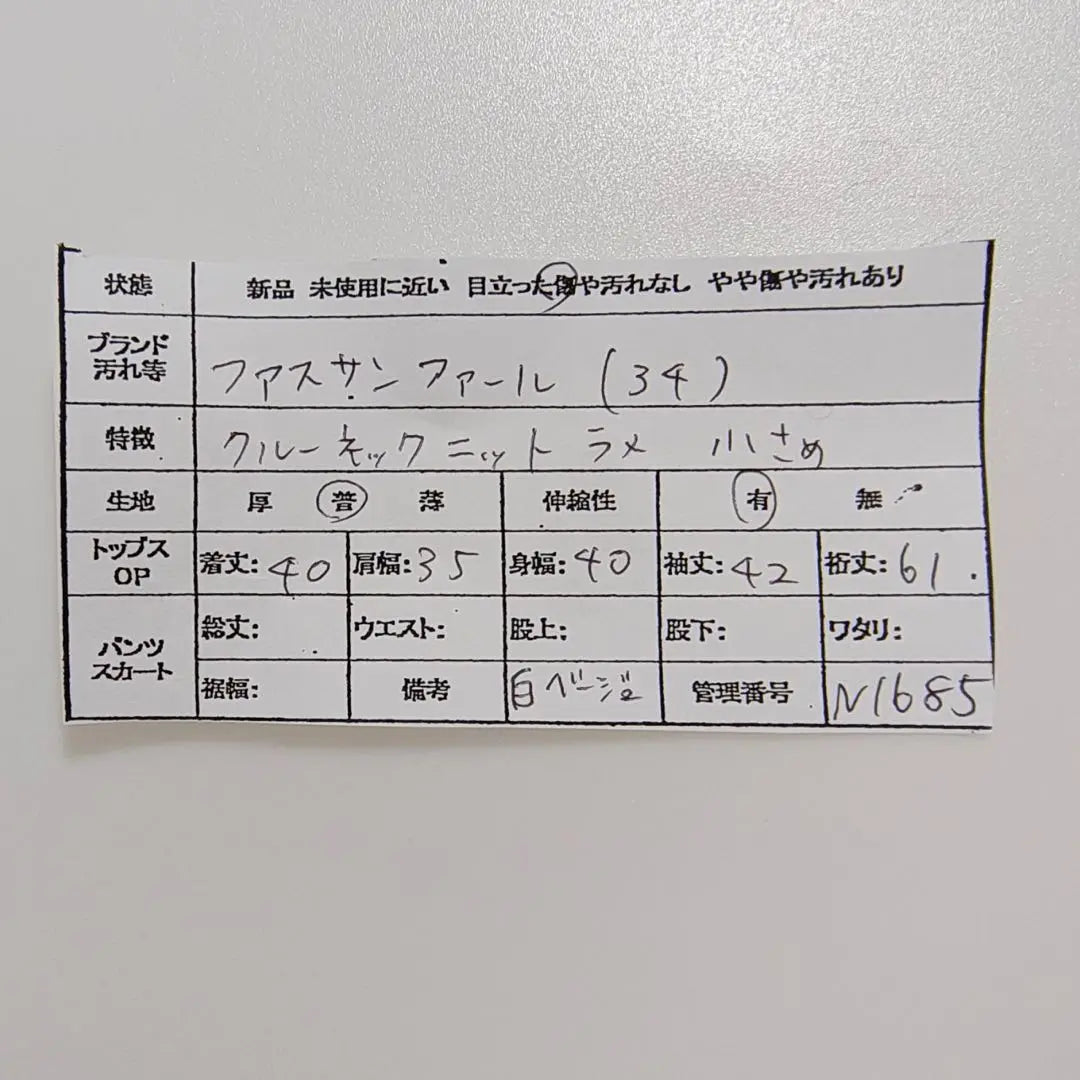 状態 新品 未使用に近い 目立った傷や汚れなし やや傷や汚れあり
ブランド
汚れ等 ファスサンファール (34)
特徴 クルーネックニット ラメ 小さめ
生地 厚 普 薄 伸縮性 有 無
トップス
OP 着丈: 40 肩幅: 35 身幅: 40 袖丈: 42 裄丈: 61.
パンツ
スカート 総丈: ウエスト: 股上: 股下: ワタリ:
裾幅: 備考 白ベージュ 管理番号 N1685